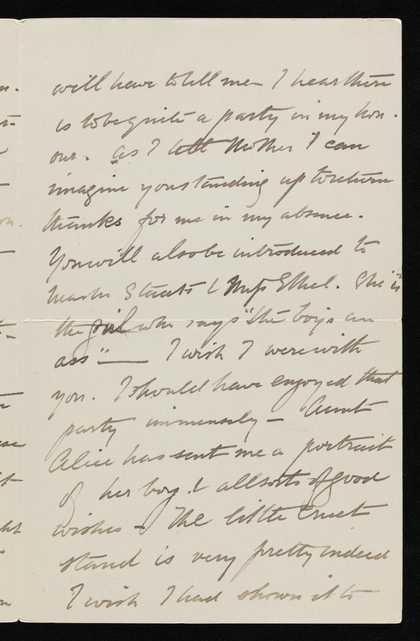 will have to tell me I hear there
is to be quite a party in my hon-
our. As I tell Mother I can
imagine you standing up to return
thanks for me in my absence.
You will also be introduced to
Stauts & Miss Ethel. She is
the girl who says "the boy's an
ass" — I wish I were with
you. I should have enjoyed that
party immensely — Aunt
Alice has sent me a portrait
of her boy & all sorts of good
wishes — The little Cruet
stand is very pretty indeed
I wish I had shown it to